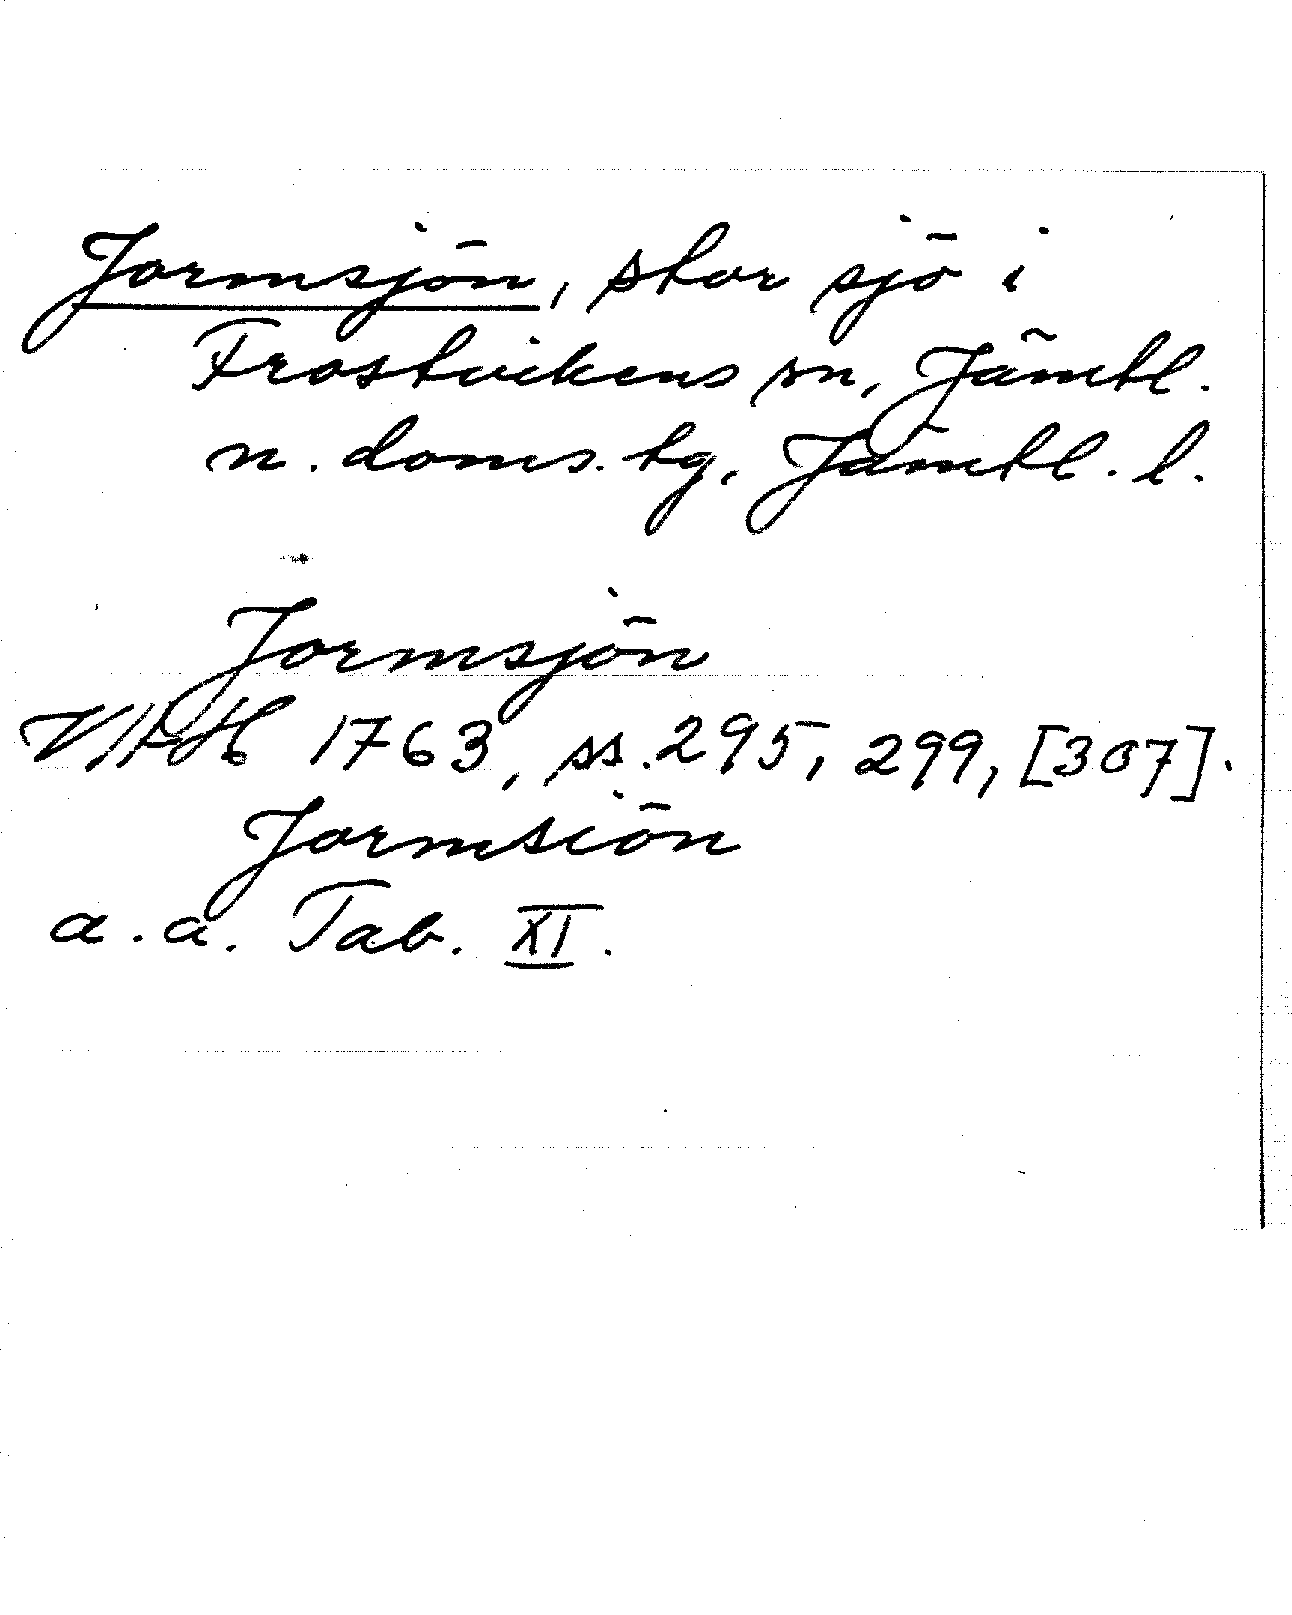 Jormsjön, stor sjö i
Frostvikens sn, Jämtl.
n. doms. tg, Jämtl. l.
Jormsjön
VAH 1763, ss. 295, 299, [307].
Jormsiön
a. a. Tab. XI.